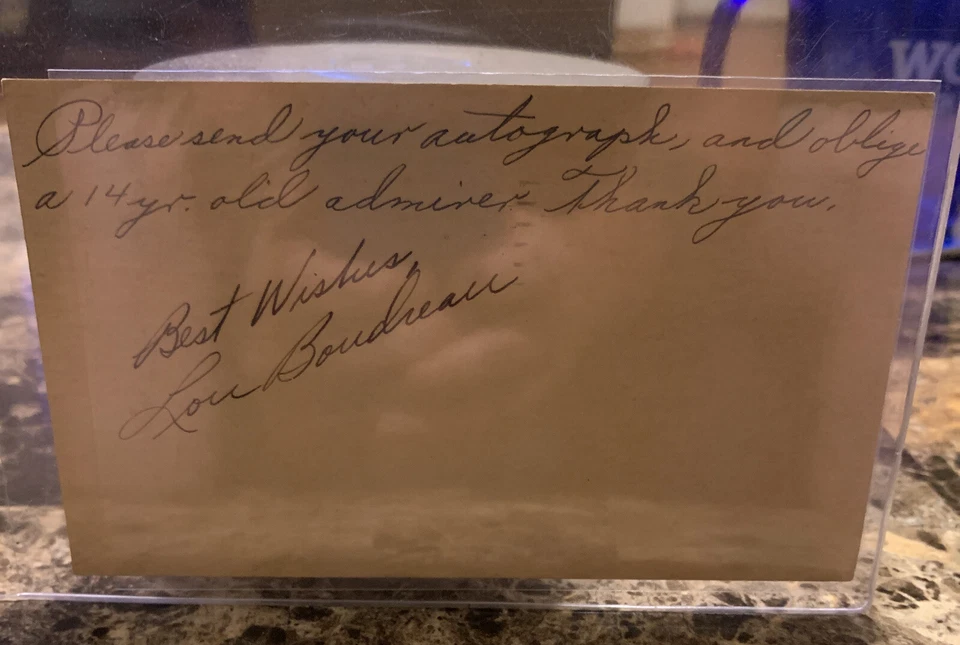 Please send your autograph, and oblige
a 14 yr. old admirer - Thank you.
Best Wishes,
Lou Boudreau
WO